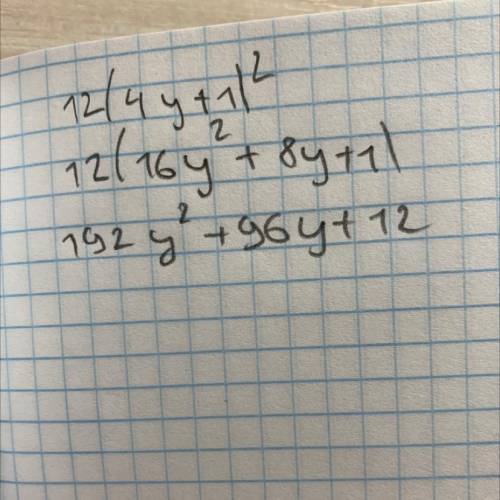 12(4y+1)²
12(16y²+8y+1)
192y²+96y+12